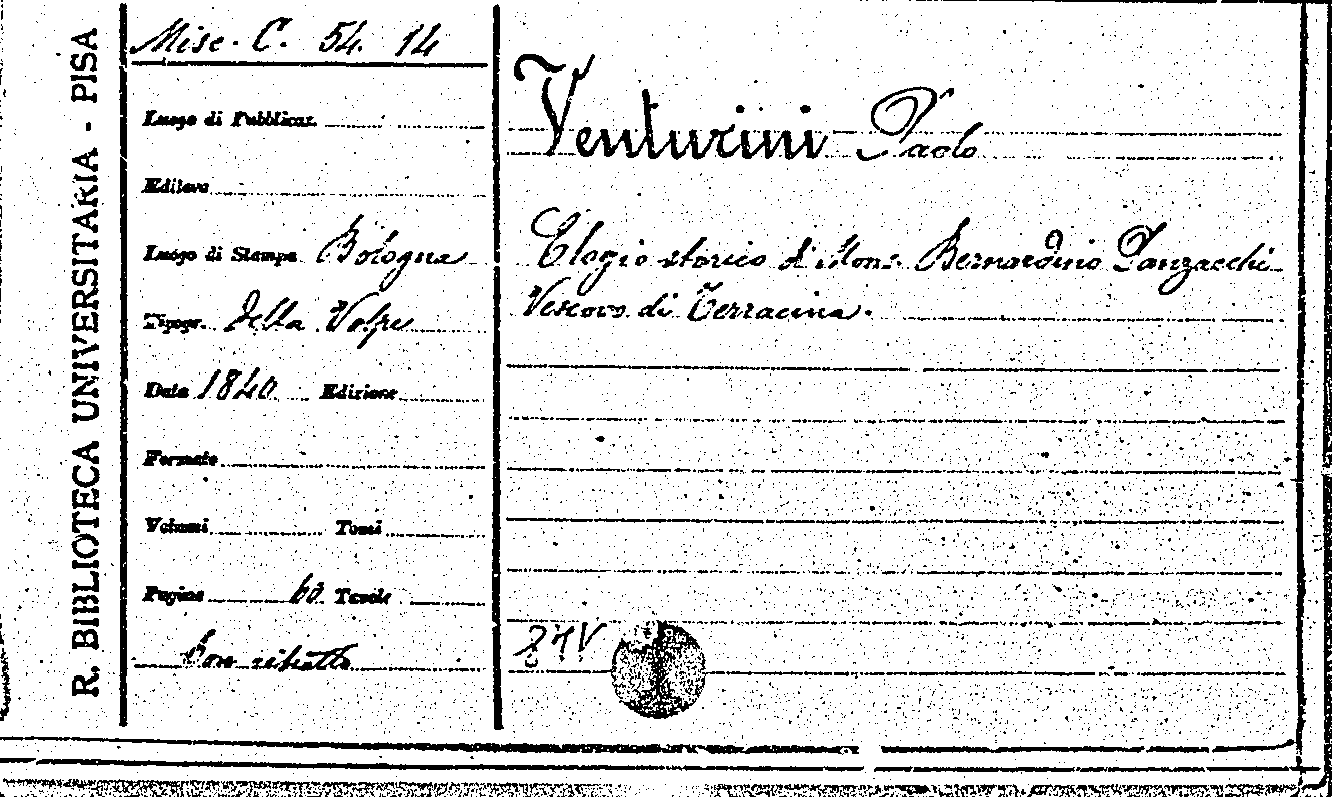 R. BIBLIOTECA UNIVERSITARIA - PISA
Misc. C. 54. 14
Luogo di Pubblicaz.
Editore
Luogo di Stampa Bologna
Tipogr. Della Volpe
Data 1840 Edizione
Formato
Volumi Tomi
Pagine 60 Tavole
Con ritratto
Venturini Paolo
Elogio storico di Mons. Bernardino Panzacchi
Vescovo di Terracina.